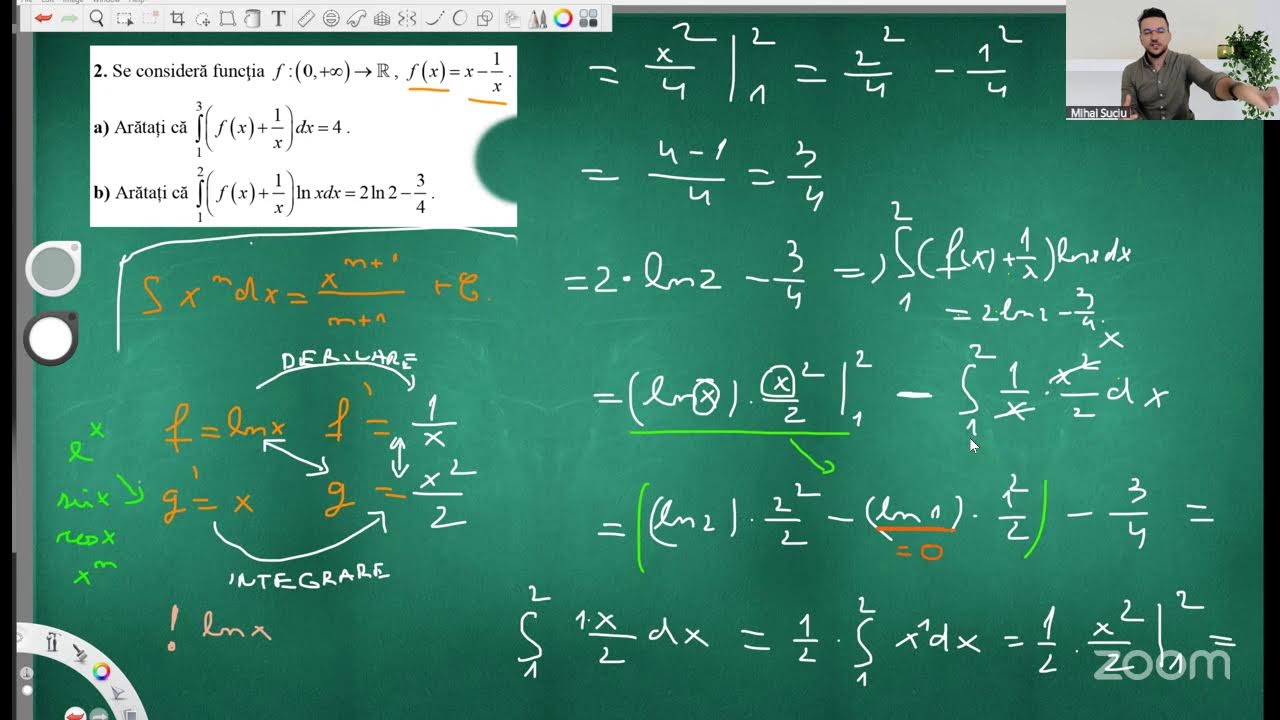 2. Se consideră funcția f : (0, +∞) → ℝ, f(x) = x − 1/x .
a) Arătați că ∫₁³ ( f(x) + 1/x ) dx = 4 .
b) Arătați că ∫₁² ( f(x) + 1/x ) ln xdx = 2 ln 2 − 3/4 .
∫ xⁿ dx = xⁿ⁺¹/(n+1) + C.
DERIVARE
f = ln x f' = 1/x
g' = x g = x²/2
INTEGRARE
eˣ
sin x
cos x
xⁿ
! ln x
= x²/4 |₁² = 2²/4 − 1²/4
= (4−1)/4 = 3/4
= 2 · ln 2 − 3/4 ⇒ ∫₁² (f(x) + 1/x) ln x dx
= 2 ln 2 − 3/4.
= (ln x) · x²/2 |₁² − ∫₁² 1/x · x²/2 dx
x
= ((ln 2) · 2²/2 − (ln 1) · 1²/2) − 3/4 =
= 0
∫₁² 1·x/2 dx = 1/2 · ∫₁² x¹ dx = 1/2 · x²/2 |₁² =
Mihai Suciu
zoom